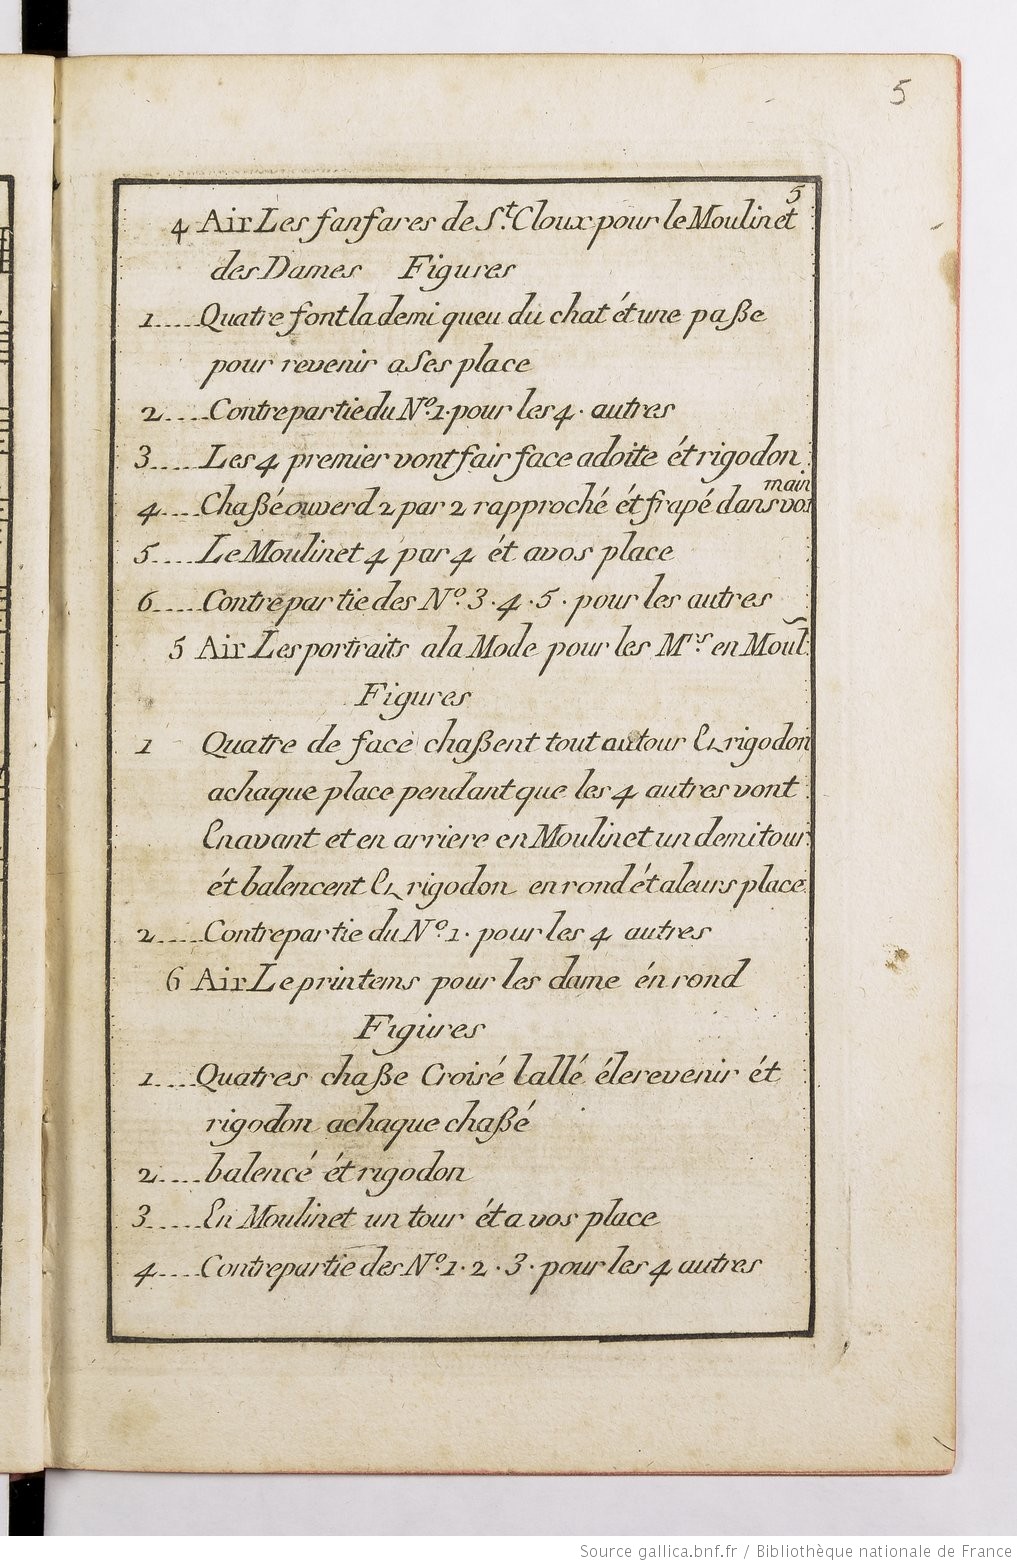 5
5
4 Air Les fanfares de S.t Cloux pour le Moulinet
des Dames Figures
1.....Quatre font la demi queu du chat ét une paße
pour revenir a Ses place
2.....Contrepartie du No.1.pour les 4. autres
3.....Les 4 premier vont fair face adoite ét rigodon
main
4....Chaßé ouverd 2 par 2 rapproché ét frapé dans vos
5....Le Moulinet 4 par 4 ét a vos place
6.....Contrepartie des No.3.4.5. pour les autres
5 Air Les portraits a la Mode pour les M.rs en Moul.
Figures
1 Quatre de face chaßent tout autour Et rigodon
a chaque place pendant que les 4 autres vont
En avant et en arriere en Moulinet un demi tour
ét balencent Et rigodon en rond ét a leurs place
2.....Contrepartie du No.1. pour les 4 autres
6 Air Le printems pour les dame én rond
Figures
1....Quatres chaße Croisé lallé élerevenir ét
rigodon a chaque chaßé
2....balencé ét rigodon
3.....En Moulinet un tour ét a vos place
4....Contrepartie des No.1.2.3. pour les 4 autres
Source gallica.bnf.fr / Bibliothèque nationale de France